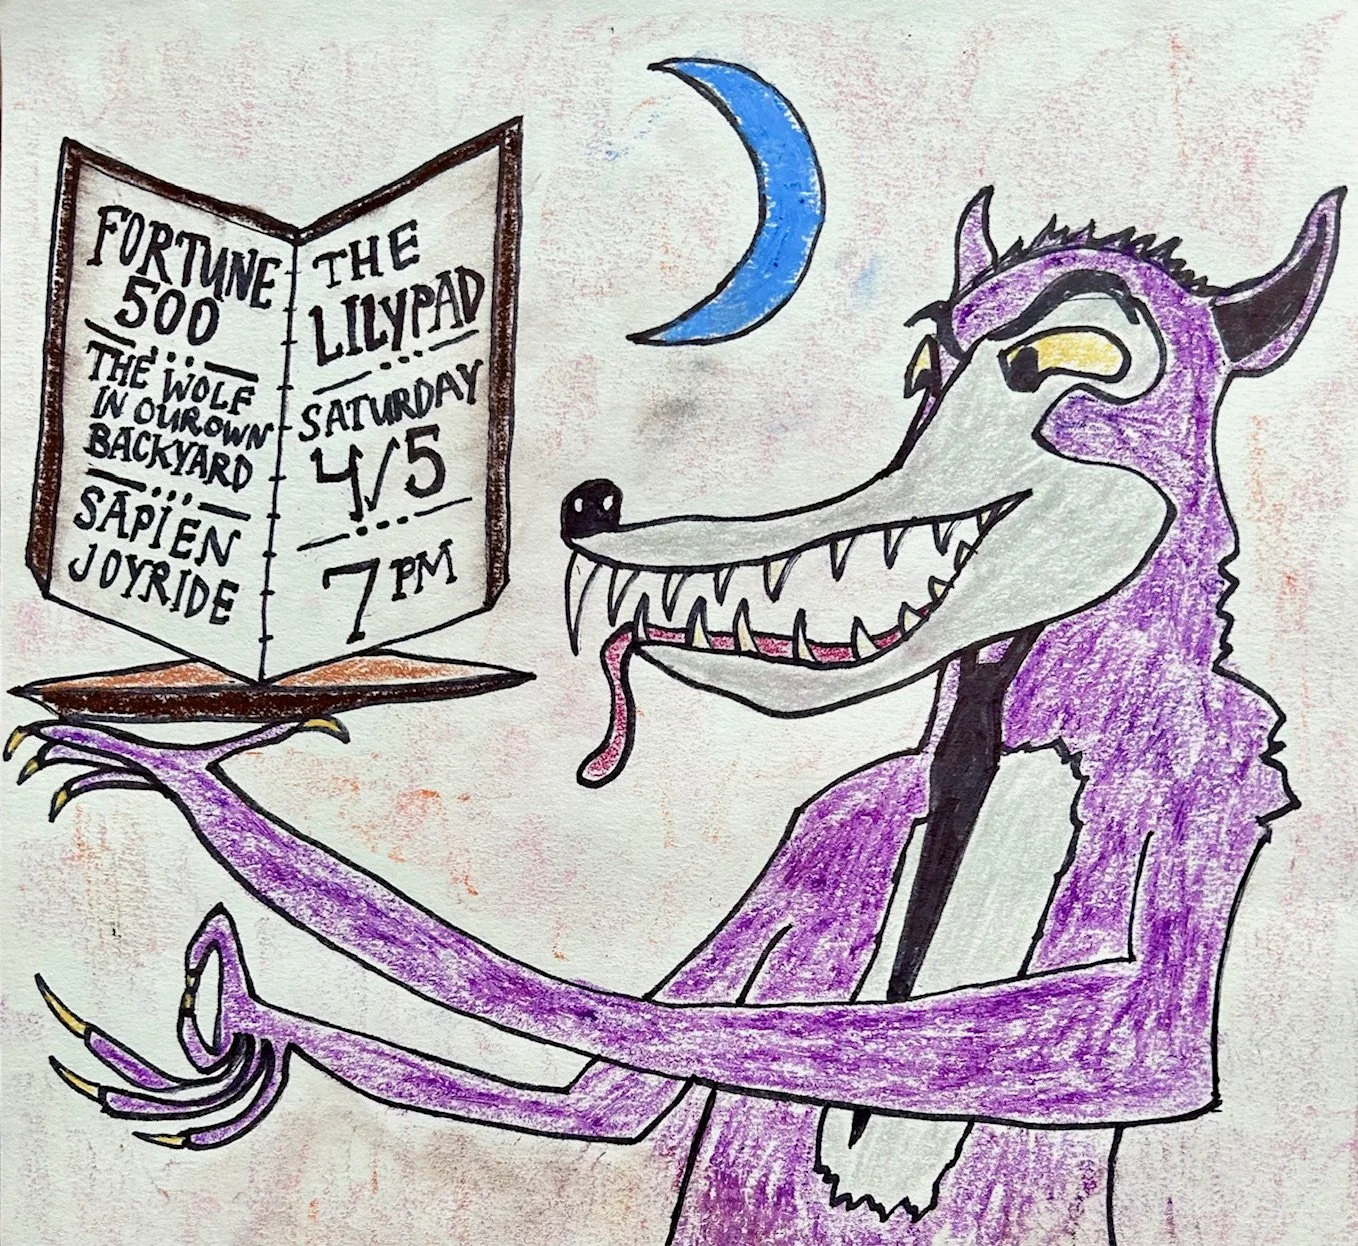 FORTUNE
500
THE WOLF
IN OUR OWN
BACKYARD
SAPIEN
JOYRIDE
THE
LILYPAD
SATURDAY
4/5
7PM